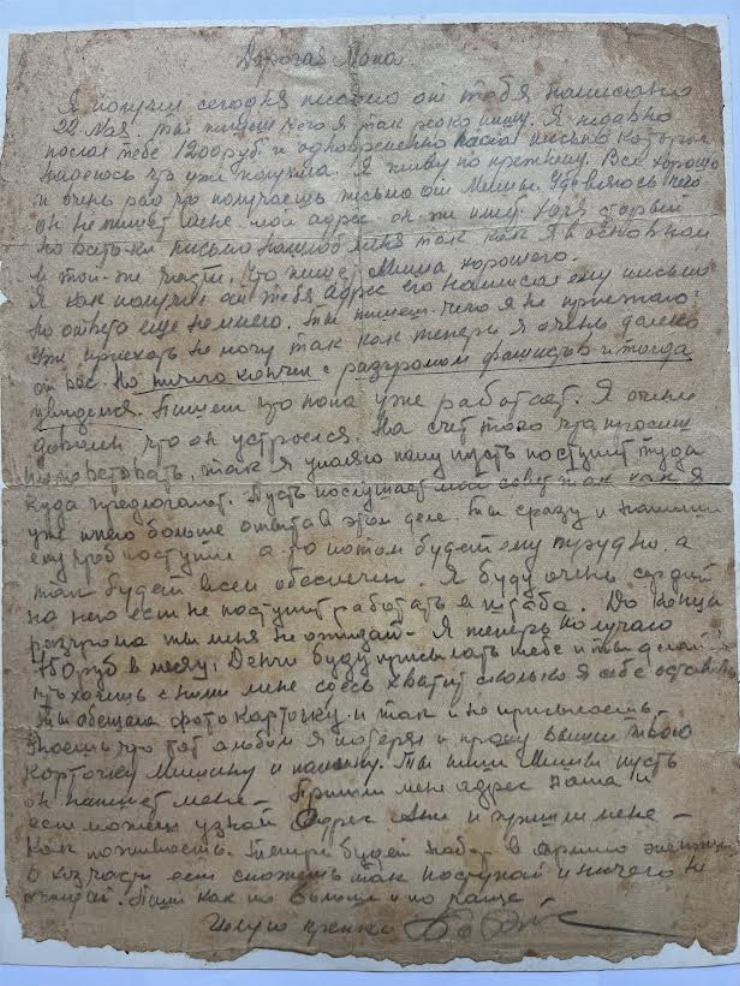 Дорогая Мама
Я получил сегодня письмо от тебя написано
22 Мая. Ты пишеш чего я так редко пишу. Я недавно
послал тебе 1200 руб. и одновременно письмо которые
надеюсь что уже получила. Я живу по прежнему. Все хорошо
и очень рад что получаешь письмо от Миши. Удевляюсь чего
он не пишет мене. мой адрес он же имеет. Хотя старый
но всеть-ки письмо нашлоб меня так как я в основном
в той-же части. Что пишет Миша хорошего.
Я как получил от тебя адрес его написал ему письмо
но ответа еще не имею. Ты пишеш чего я не приезжаю.
Уже приехать не могу так как теперь я очень далеко
от вас. Но ничего кончим с разгромом фашистов и тогда
увидемся. Пишеш что папа уже работает. Я очень
доволен что он устроился. На счет того что просиш
посоветовать, так я умоляю папу пусть поступит туда
куда предлогают. Пусть послушает мой совет так как я
уже имею больше опыта в этом деле. Ты сразу и напиши
ему чтоб поступил а то потом будет ему трудно, а
так будет всем обеспечен. Я буду очень сердит
на него есл не поступит работать в штаба. До конца
разгрома ты меня не ожидай- Я теперь получаю
руб в месяц. Денги буду присылать тебе и ты делай
что хочешь с ними мене здесь хватит сколько я себе оставлю
Ты обещала фото карточку и так и не присылаешь-
Знаешь что тот альбом я потерял и прошу вышли твою
карточку Мишину и папину. Ты пиши Мише пусть
он напишет мене- Пришли мене адрес
есл можеш узнай Адрес Ани и пришли мене-
Как поживаешь. Теперь будет набор в армию
в част есл сможеш так поступай и ничего не
ожидай. Пиши как по больше и по чаще
Целую крепко